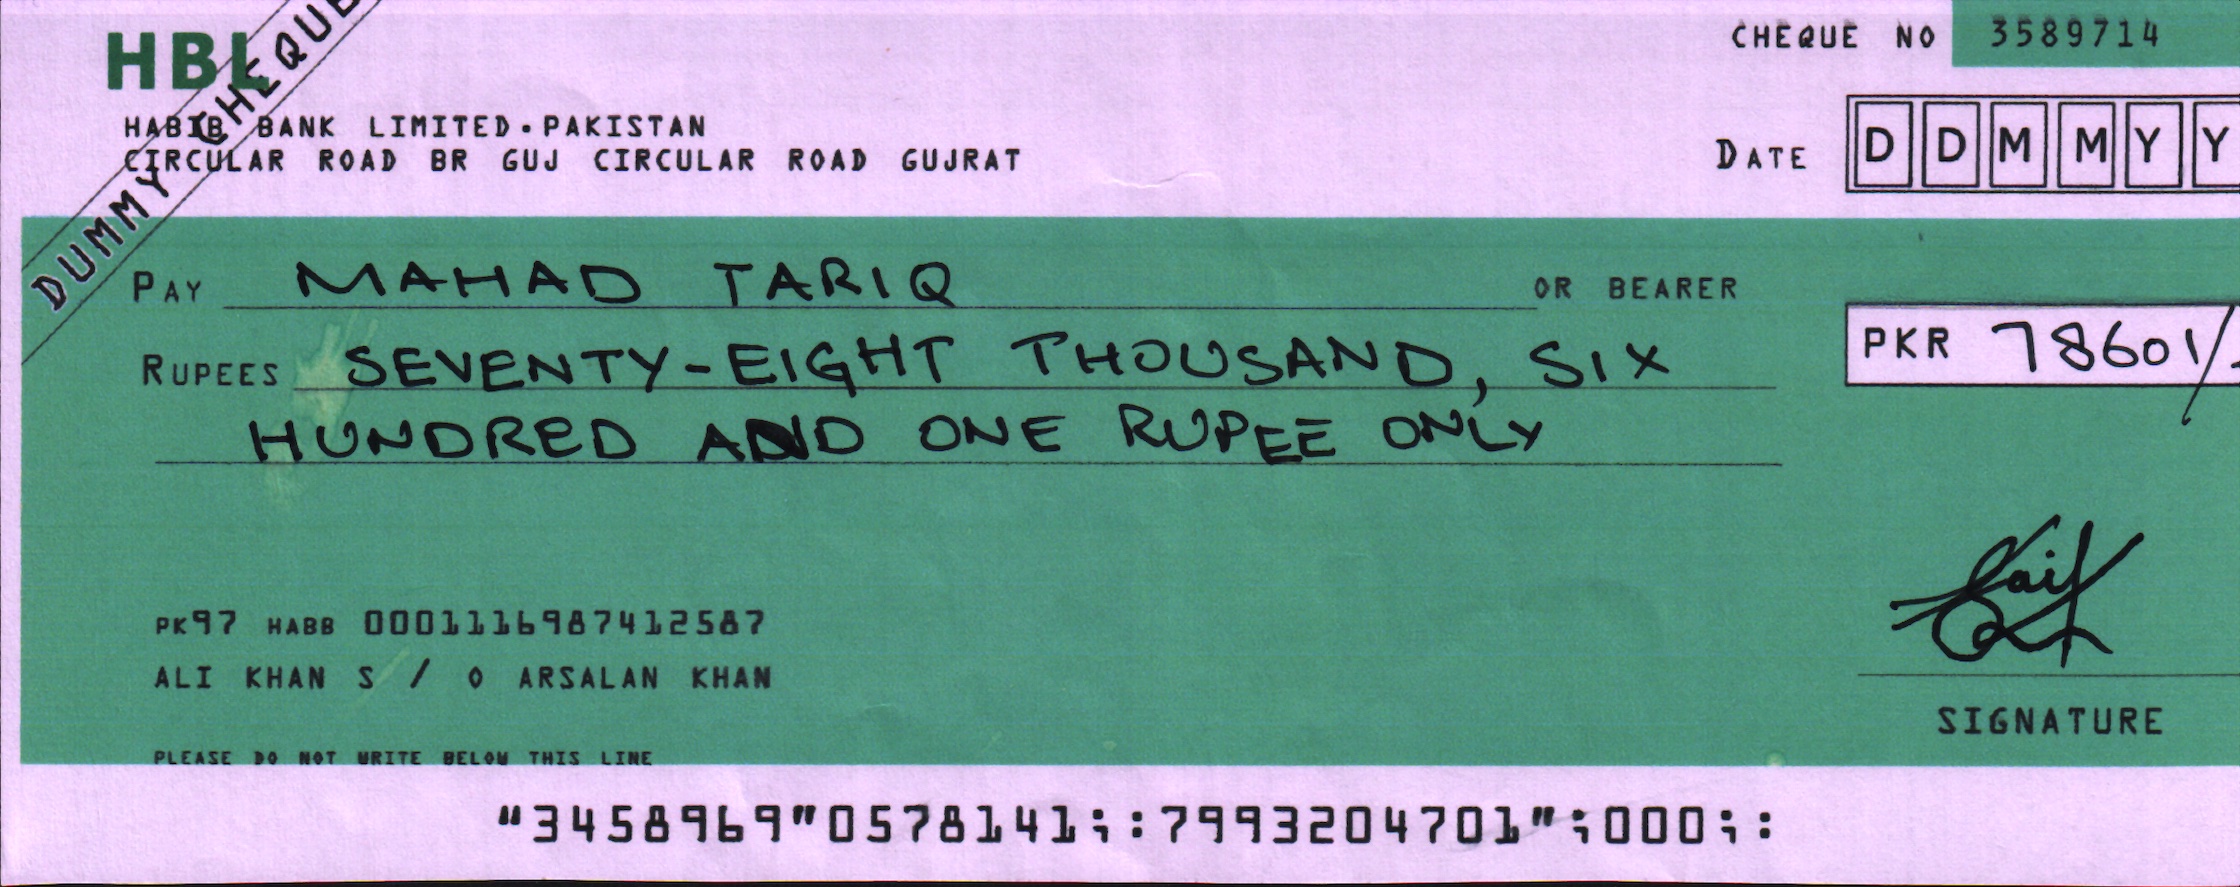 DUMMY CHEQUE
HBL
CHEQUE NO 3589714
HABIB BANK LIMITED. PAKISTAN
CIRCULAR ROAD BR GUJ CIRCULAR ROAD GUJRAT
DATE D D M M Y Y
PAY MAHAD TARIQ OR BEARER
RUPEES SEVENTY-EIGHT THOUSAND, SIX
PKR 78601/
HUNDRED AND ONE RUPEE ONLY
PK97 HABB 0001116987412587
ALI KHAN S / O ARSALAN KHAN
SIGNATURE
PLEASE DO NOT WRITE BELOW THIS LINE
"3458969"0578141;:7993204701";000;: